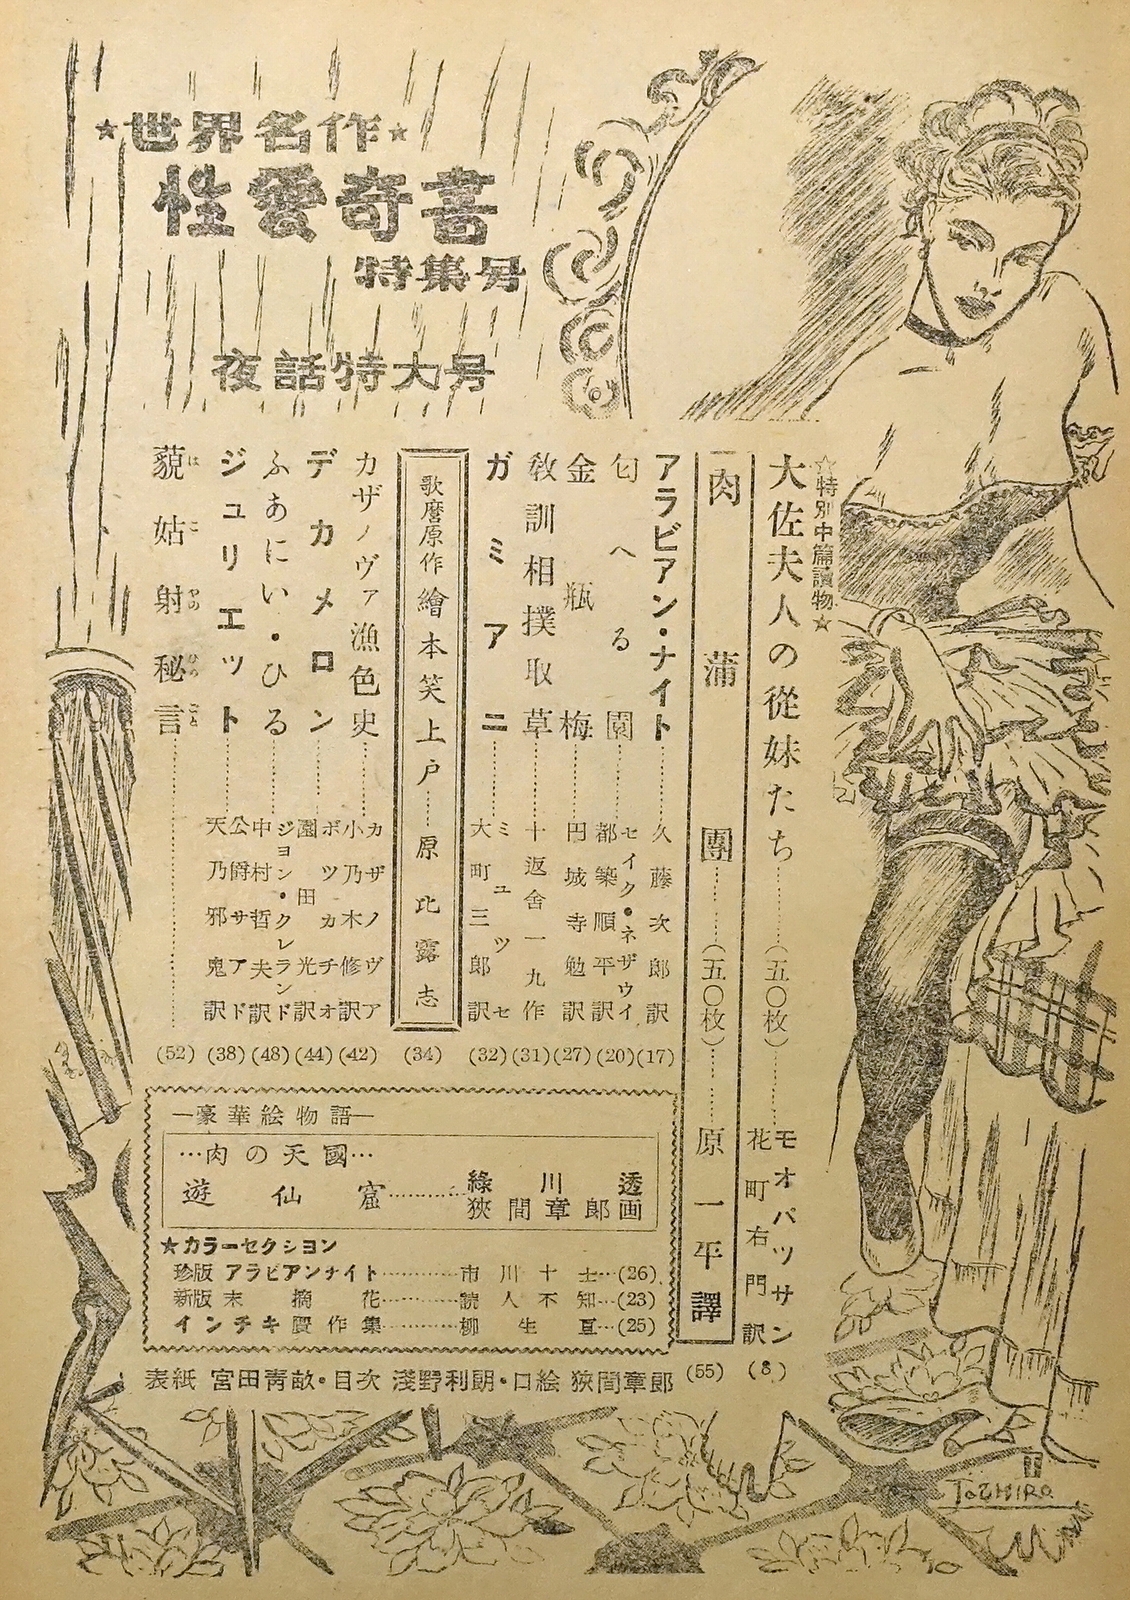 ★世界名作★
性愛奇書
特集号
夜話特大号
☆特別中篇讀物☆
大佐夫人の從妹たち……(五〇枚)……モオパツサン 花町右門訳 (8)
肉蒲團……(五〇枚)……原一平譯 (55)
アラビアン・ナイト……久藤次郎訳 (17)
匂へる園……セイク・ネザウイ 都築順平訳 (20)
金瓶梅……円城寺勉訳 (27)
教訓相撲取草……十返舎一九作 (31)
ガミアニ……ミュツセ 大町三郎訳 (32)
歌麿原作 繪本笑上戸……原比露志 (34)
カザノヴァ漁色史……カザノヴア 小乃木修訳 (42)
デカメロン……ボツカチオ 園田光訳 (44)
ふあにい・ひる……ジョン・クレランド 中村哲夫訳 (48)
ジュリエット……公爵サアド (38)
藐姑射秘言……天乃邪鬼訳 (52)
はこやのひめごと
―豪華絵物語―
…肉の天國…
遊仙窟……綠川透
狹間章郎画
★カラーセクション
珍版 アラビアンナイト……市川十士…(26)
新版 末摘花……読人不知…(23)
インチキ贋作集……柳生亘…(25)
表紙 宮田靑畝・目次 淺野利朗・口絵 狹間章郎
TOSHIRO